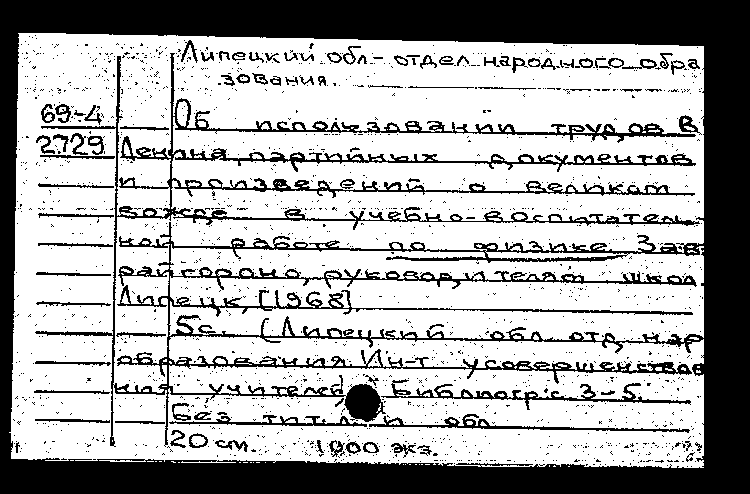 Липецкий обл- отдел народного обра
зования.
69-4 Об использовании трудов В
2729 Ленина, партийных документов
и произведений о великом
вожде в учебно-воспитатель-
ной работе по физике Зав.
райгороно, руководителям школ.
Липецк, [1968].
5с. (Липецкий обл отд нар
образования. Ин-т усовершенствова
ния учителей Библиогр: с. 3-5.
Без тит. л. и обл
20 см. 1000 экз.